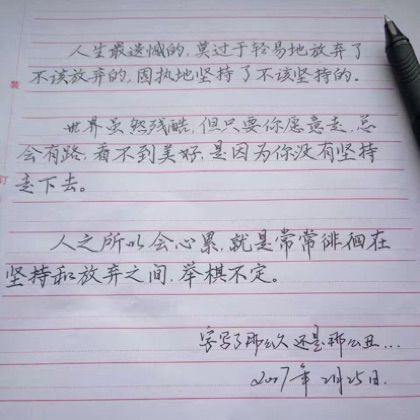 人生最遗憾的,莫过于轻易地放弃了
不该放弃的,固执地坚持了不该坚持的。
世界虽然残酷,但只要你愿意走,总
会有路,看不到美好,是因为你没有坚持
走下去。
人之所以会心累,就是常常徘徊在
坚持和放弃之间,举棋不定。
字写了那么久还是那么丑...
2007年2月25日.
装
订